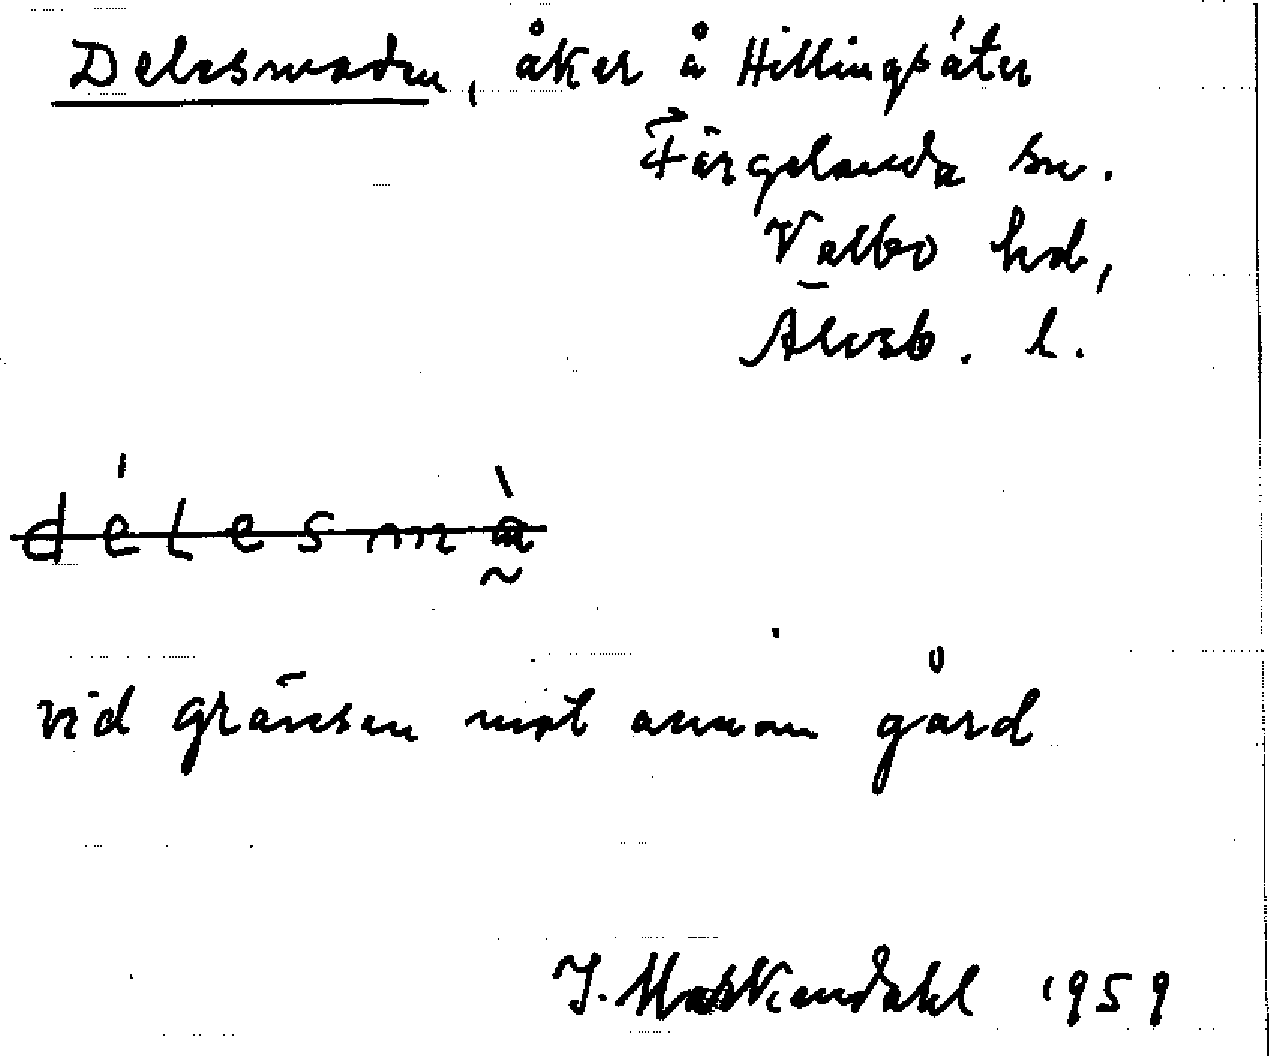 Delesmaden, åker å Hillingsäter
Färgelanda sn.
Valbo hd,
Älvsb. l.
délesmà
vid gränsen mot annan gård
J. Maskendahl 1959